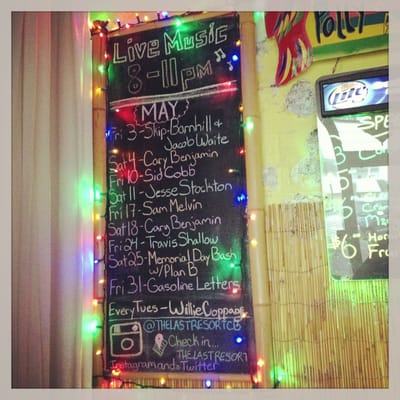 Live Music
8-11pm
MAY
Fri 3-Skip Barnhill &
Jacob Waite
Sat 4-Cary Benjamin
Fri 10-Sid Cobb
Sat 11-Jesse Stockton
Fri 17-Sam Melvin
Sat 18-Cary Benjamin
Fri 24-Travis Shallow
Sat 25-Memorial Day Bash
w/Plan B
Fri 31-Gasoline Letters
Every Tues-Willie Coppage
@THELASTRESORTCB
Check in...
THE LAST RESORT
Instagram and Twitter
Polly
Lite
SPE
$6